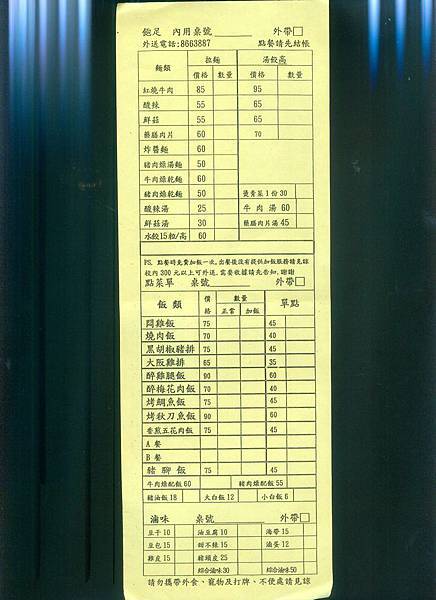 飽足 內用桌號 外帶□
外送電話:8663887 點餐請先結帳
麵類 拉麵 湯餃 高
價格 數量 價格 數量
紅燒牛肉 85 95
酸辣 55 65
鮮菇 55 65
藥膳肉片 60 70
炸醬麵 60
豬肉燥湯麵 50
牛肉燥乾麵 60
豬肉燥乾麵 50 燙青菜1份30
酸辣湯 25 牛肉湯 60
鮮菇湯 30 藥膳肉片湯 45
水餃15粒/高 60
PS. 點餐時免費加飯一次,出餐後沒有提供加飯服務請見諒
校內300元以上可外送,需要收據請先告知,謝謝
點菜單 桌號 外帶□
飯類 價格 數量 單點
正常 加飯
悶雞飯 75 45
燒肉飯 70 40
黑胡椒豬排 75 45
大阪雞排 65 35
醉雞腿飯 90 60
醉梅花肉飯 70 40
烤鯛魚飯 75 45
烤秋刀魚飯 90 60
香煎五花肉飯 75 45
A 餐
B 餐
豬腳飯 75 45
牛肉燥配飯60 豬肉燥配飯55
豬油飯18 大白飯12 小白飯6
滷味 桌號 外帶□
豆干10 油豆腐10 海帶15
豆包15 甜不辣15 滷蛋12
雞皮15 豬頭皮25
綜合滷味30 綜合滷味50
請勿攜帶外食、寵物及打牌、不便處請見諒